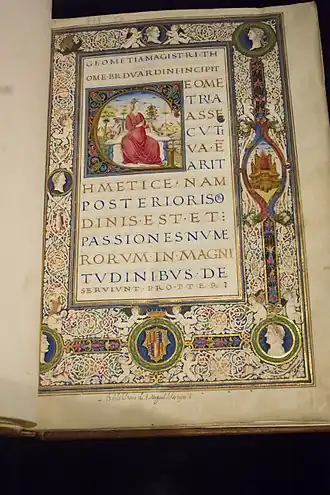 GEOMETIA MAGISTRI·TH
OME·BRDVARDINI·INCIPIT
GEOME
TRIA
ASSE
CVTI
VA·E
ARIT
HMETICE·NAM
POSTERIORIS O
DINIS·EST·ET:
PASSIONES NVME
RORVM·IN·MAGNI
TVDINIBVS·DE
SERVIVNT·PROPTER: